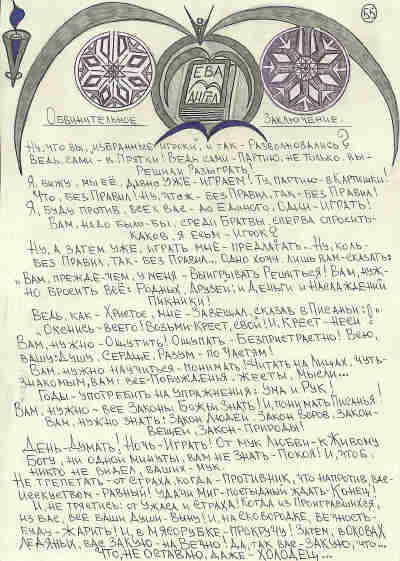 55
ЕВА
АНГЕЛ
ОБВИНИТЕЛЬНОЕ ЗАКЛЮЧЕНИЕ.
НУ, ЧТО ВЫ, ИЗБРАННЫЕ ИГРОКИ, И ТАК - РАЗВОЛНОВАЛИСЬ?
ВЕДЬ, САМИ - В ПРЯТКИ! ВЕДЬ САМИ - ПАРТИЮ, НЕ ТОЛЬКО, ВЫ-
РЕШИЛИ РАЗЫГРАТЬ!
Я, ВИЖУ, МЫ ЕЁ, ДАВНО УЖЕ - ИГРАЕМ! ТУ, ПАРТИЮ - В КАРТИШКИ!
ЧТО, БЕЗ ПРАВИЛ! НУ, ЧТО Ж - БЕЗ ПРАВИЛ, ТАК - БЕЗ ПРАВИЛ!
Я, БУДУ ПРОТИВ, ВСЕХ ВАС - ДО ЕДИНОГО, ОДИН - ИГРАТЬ!
ВАМ, НАДО БЫЛО - БЫ, СРЕДИ БРАТВЫ, СПЕРВА СПРОСИТЬ -
КАКОВ, Я ЕСЬМ - ИГРОК?
НУ, А ЗАТЕМ УЖЕ, ИГРАТЬ МНЕ - ПРЕДЛАГАТЬ. НУ, КОЛЬ -
БЕЗ ПРАВИЛ, ТАК - БЕЗ ПРАВИЛ... ОДНО ХОЧУ, ЛИШЬ ВАМ - СКАЗАТЬ:
"ВАМ, ПРЕЖДЕ - ЧЕМ, У МЕНЯ - ВЫИГРЫВАТЬ РЕШИТЬСЯ! ВАМ, НУЖ-
НО БРОСИТЬ ВСЁ: РОДНЫХ, ДРУЗЕЙ, И ДЕНЬГИ И НАСЛАЖДЕНИЙ
ПИКНИКИ!
ВЕДЬ, КАК - ХРИСТОС, МНЕ - ЗАВЕЩАЛ, СКАЗАВ В ПИСАНЬИ:
"ОТКЕНИСЬ - ВСЕГО! ВОЗЬМИ - КРЕСТ, СВОЙ! И КРЕСТ - НЕСИ!"
ВАМ, НУЖНО - ОЩУТИТЬ! ОЩУПАТЬ - БЕСПРИСТРАСТНО! ВСЮ,
ВАШУ - ДУШУ, СЕРДЦЕ, РАЗУМ - ПО ЧАСТЯМ!
ВАМ, НУЖНО НАУЧИТЬСЯ - ПОНИМАТЬ! ЧИТАТЬ НА ЛИЦАХ, ЧУТЬ-
ЗНАКОМЫМ, ВАМ: ВСЕ - ПОБУЖДЕНЬЯ, ЖЕСТЫ, МЫСЛИ...
ГОДЫ - УПОТРЕБИТЬ НА УПРАЖНЕНИЯ: УМА И РУК!
ВАМ, НУЖНО - ВСЕ ЗАКОНЫ БОЖЬИ ЗНАТЬ! И, ПОНИМАТЬ ПИСАНЬЯ!
ВАМ, НУЖНО ЗНАТЬ: ЗАКОН ЛЮДЕЙ, ЗАКОН ВОРОВ, ЗАКОН -
ВЕЩЕЙ, ЗАКОН - ПРИРОДЫ!
ДЕНЬ - ДУМАТЬ! НОЧЬ - ИГРАТЬ! ОТ МУК ЛЮБВИ - К ЖИВОМУ
БОГУ, НИ ОДНОЙ МИНУТЫ, ВАМ НЕ ЗНАТЬ - ПОКОЯ! И, ЧТОБ,
НИКТО НЕ ВИДЕЛ, ВАШИХ - МУК.
НЕ ТРЕПЕТАТЬ - ОТ СТРАХА, КОГДА - ПРОТИВНИК, ЧТО НАПРОТИВ, ВАС -
ИССКУСТВОМ - РАВНЫЙ! УДАЧИ МИГ - ПОСТЫДНЫМ ЖДАТЬ КОНЕЦ!
И, НЕ ТРЯСТИСЬ: ОТ УЖАСА И СТРАХА! КОГДА ИЗ ПРОИГРАВШИХСЯ,
ИЗ ВАС, ВСЕ ВАШИ ДУШИ - ВЫНУ! И, НА СКОВОРОДКЕ, ВЕЧНОСТЬ -
БУДУ - ЖАРИТЬ! И, В МЯСОРУБКЕ - ПРОКРУЧУ! ЗАТЕМ, В ОКОВАХ
ЛЕДЯНЫХ, ВАС ЗАКУЮ - НАВЕЧНО! ДА, ТАК, ВАС - ЗАКУЮ, ЧТО...
ЧТО, НЕ ОСТАВЛЮ, ДАЖЕ - ХОЛОДЕЦ...